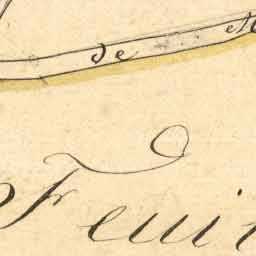 de
Feui